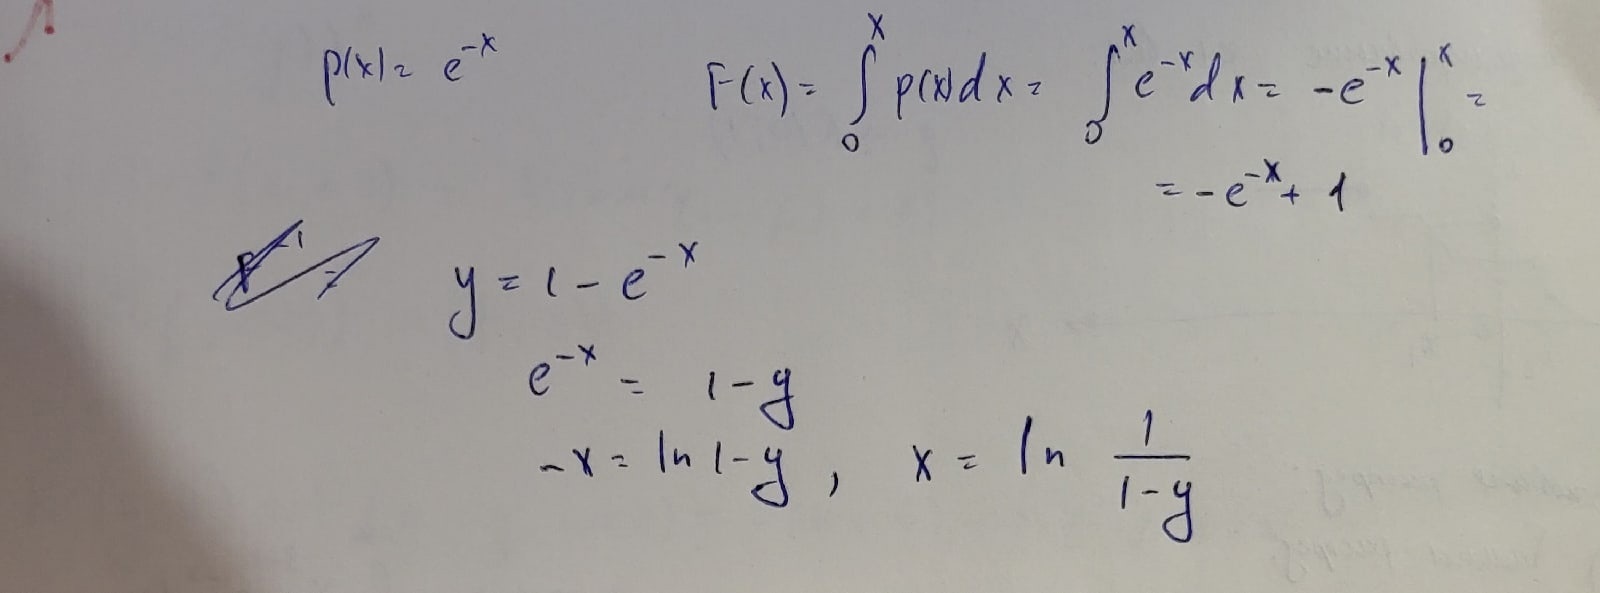 p(x) = e^{-x}    F(x) = \int_0^x p(x)dx = \int_0^x e^{-x}dx = -e^{-x} |_0^x =
= -e^{-x} + 1
y = 1 - e^{-x}
e^{-x} = 1 - y
-x = ln 1-y , x = ln \frac{1}{1-y}